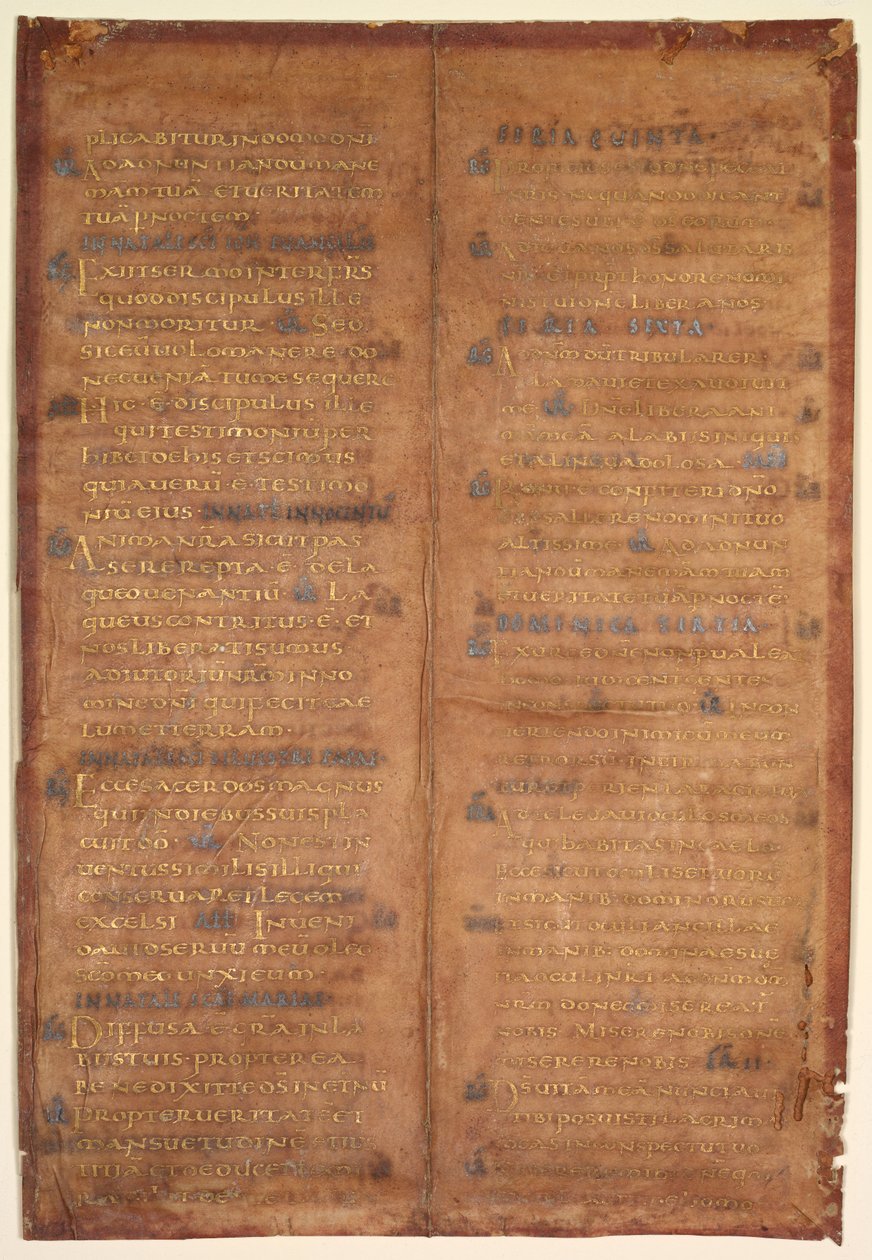 PLICABITUR IN DOMO DN̄I
V̄R AD ADNUNTIANDŪ MANE
MAM TUĀ · ET VERITATEM
TUĀ P NOCTEM ·
IN NATALE SC̄I IOH̄ EVANGELIS̄
EXIIT SERMO INTER FR̄S
QUOD DISCIPULUS ILLE
NON MORITUR · V̄R SED ·
SIC EŪ VOLO MANERE · DO
NEC VENIĀ TU ME SEQUERE
HIC · Ē · DISCIPULUS ILLE
QUI TESTIMONIŪ PER
HIBET DE HIS ET SCIMUS
QUIA VERŪ · Ē · TESTIMO
NIŪ EIUS · IN NAT̄ INNOCENTŪ
ANIMA NR̄A SICUT PAS
SER EREPTA · Ē · DE LA
QUEO VENANTIŪ · V̄R LA
QUEUS CONTRITUS · Ē · ET
NOS LIBERATI SUMUS
ADIUTORIŪ NR̄M IN NO
MINE DN̄I QUI FECIT CAE
LUM ET TERRAM ·
IN NATALE SC̄I SILVESTRI PAPAE ·
R̄G ECCE SACERDOS MAGNUS
QUI IN DIEBUS SUIS PLA
CUIT DŌ · V̄R NON EST IN
VENTUS SIMILIS ILLI QUI
CONSERVARET LEGEM
EXCELSI ALL̄ INVENI
DAVID SERVŪ MEŪ OLEO
SC̄O MEO UNXI EUM ·
IN NATALE SC̄AE MARIAE ·
DIFFUSA · Ē · GR̄A IN LA
BIIS TUIS · PROPTEREA
BENEDIXIT TE DS̄ IN AETNŪ
V̄R PROPTER VERITATĒ ET
MANSUETUDINĒ ET IUS
TITIĀ ET DEDUCET
FERIA QUINTA ·
R̄G PROPITIUS ESTO DN̄E PECCA
TIS NR̄IS · NE QUANDO DICANT
GENTES UBI · Ē · DS̄ EORUM ·
V̄R ADIUVA NOS DS̄ SALUTARIS
NR̄ · ET PR̄PT HONORE NOMI
NIS TUI DN̄E LIBERA NOS ·
FERIA SEXTA ·
R̄G AD DN̄M DŪ TRIBULARER ·
CLAMAVI ET EXAUDIVIT
ME · V̄R DN̄E LIBERA ANI
MĀ MEĀ A LABIIS INIQUIS
ET A LINGUA DOLOSA · SABB̄
R̄G BONŪ · Ē · CONFITERI DN̄O
ET PSALLERE NOMINI TUO
ALTISSIME · V̄R AD ADNUN
TIANDŪ MANE MĀM TUAM
ET VERITATĒ TUĀ P NOCTĒ ·
DOMINICA TERTIA ·
R̄G EXURGE DN̄E NON PVALEA
HOMO IUDICENT GENTES
IN CONSPECTU TUO · V̄R IN CON
VERTENDO INIMICŪ MEUM
RETRORSŪ · INFIRMABUN
TUR ET PERIENT A FACIE TUA
AD TE LEVAVI OCULOS MEOS
QUI HABITAS IN CAELO
ECCE SICUT OCULI SERVORŪ
IN MANIB · DOMINORUM SUOR
ET SICUT OCULI ANCILLAE
IN MANIB · DOMINAE SUE
ITA OCULI NR̄I AD DN̄M DM̄
NR̄M DONEC MISEREAT̄
NOBIS MISERE NOBIS DNĒ
MISERERE NOBIS FR̄ II ·
R̄G DS̄ VITĀ MEĀ NUNCIAVI
TIBI POSUISTI LACRIM
MEAS IN CONSPECTU TUO